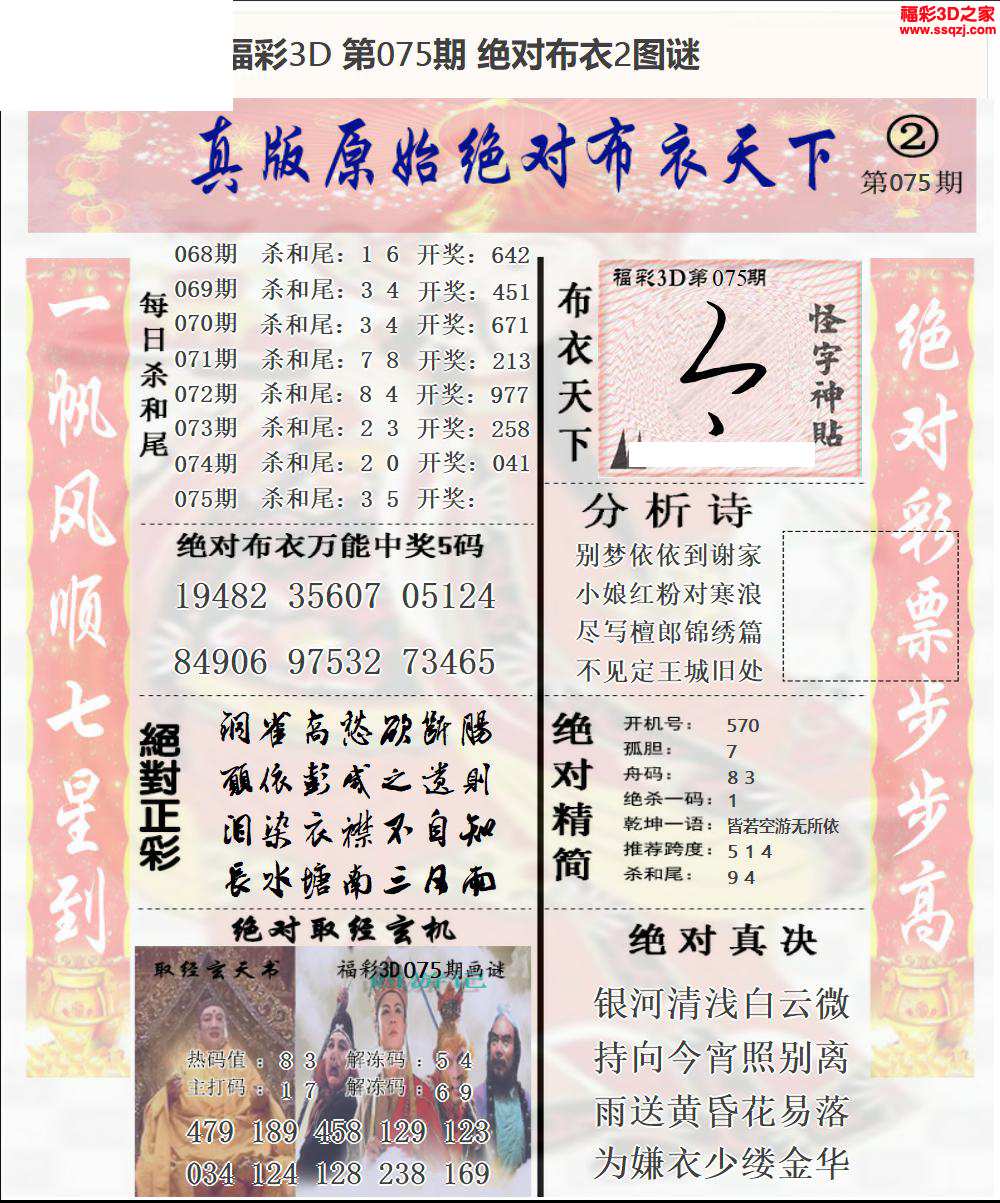 福彩3D之家
www.ssqzj.com
福彩3D 第075期 绝对布衣2图谜
真版原始绝对布衣天下
②
第075期
一帆风顺七星到
每日杀和尾
068期 杀和尾：1 6 开奖：642
069期 杀和尾：3 4 开奖：451
070期 杀和尾：3 4 开奖：671
071期 杀和尾：7 8 开奖：213
072期 杀和尾：8 4 开奖：977
073期 杀和尾：2 3 开奖：258
074期 杀和尾：2 0 开奖：041
075期 杀和尾：3 5 开奖：
绝对布衣万能中奖5码
19482 35607 05124
84906 97532 73465
絕對正彩
洞雀高愁欲斷腸
願依彭咸之遺則
淚染衣襟不自知
長水塘南三日雨
绝对取经玄机
取经玄天书
福彩3D075期画谜
热码值：8 3 解冻码：5 4
主打码：1 7 解冻码：6 9
479 189 458 129 123
034 124 128 238 169
布衣天下
福彩3D第075期
怪字神貼
分析诗
别梦依依到谢家
小娘红粉对寒浪
尽写檀郎锦绣篇
不见定王城旧处
绝对精简
开机号：570
孤胆：7
舟码：8 3
绝杀一码：1
乾坤一语：皆若空游无所依
推荐跨度：5 1 4
杀和尾：9 4
绝对真决
银河清浅白云微
持向今宵照别离
雨送黄昏花易落
为嫌衣少缕金华
绝对彩票步步高